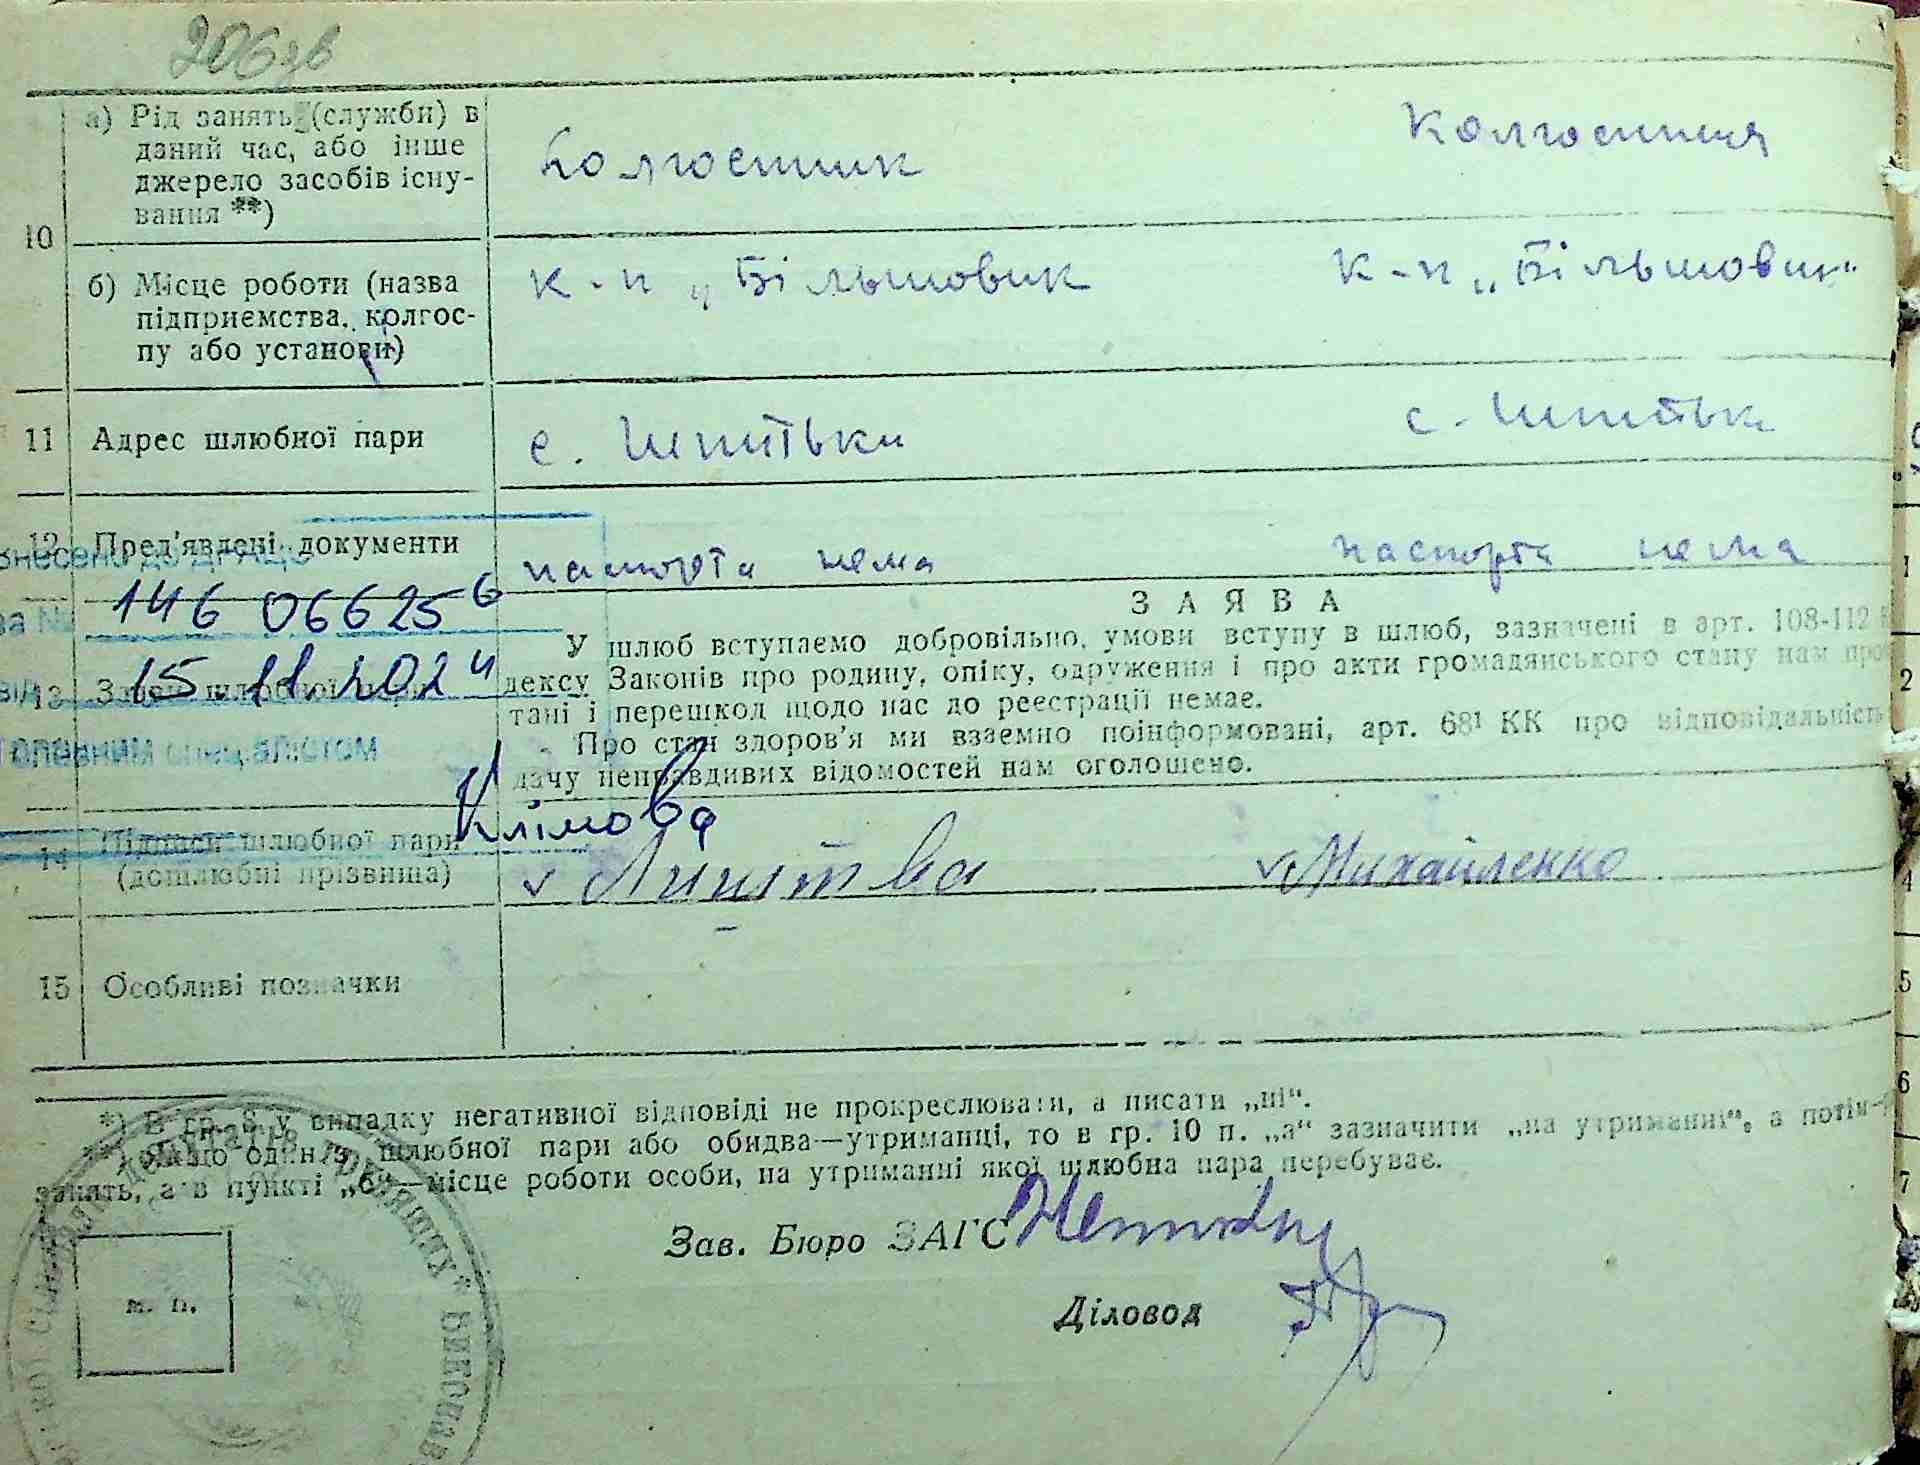 206зв
10
а) Рід занять (служби) в
даний час, або інше
джерело засобів існу-
вання **)
Колгоспник
Колгоспниця
б) Місце роботи (назва
підприємства, колгос-
пу або установи)
к-п „Більшовик
к-п „Більшовик“
11
Адрес шлюбної пари
с. Шпитьки
с. Шпитьки
12
Пред'явлені документи
паспорта нема
паспорта нема
внесено до ДРАЦС
за №
146 066256
від
15.11.2024
головним спеціалістом
Клімова
13
Заява шлюбної пари
ЗАЯВА
У шлюб вступаємо добровільно, умови вступу в шлюб, зазначені в арт. 108-112
дексу Законів про родину, опіку, одруження і про акти громадянського стану нам про
тані і перешкод щодо нас до реєстрації немає.
Про стан здоров'я ми взаємно поінформовані, арт. 68¹ КК про відповідальність
дачу неправдивих відомостей нам оголошено.
14
Підписи шлюбної пари
(дошлюбні прізвища)
Михайленко
15
Особливі позначки
*) В гр. 8 у випадку негативної відповіді не прокреслювати, а писати „ні“.
один з шлюбної пари або обидва—утриманці, то в гр. 10 п. „а“ зазначити „на утриманні“, а потім
занять, а в пункті „б“—місце роботи особи, на утриманні якої шлюбна пара перебуває.
Зав. Бюро ЗАГС
Діловод
м. п.
депутатів трудящих * Виконав